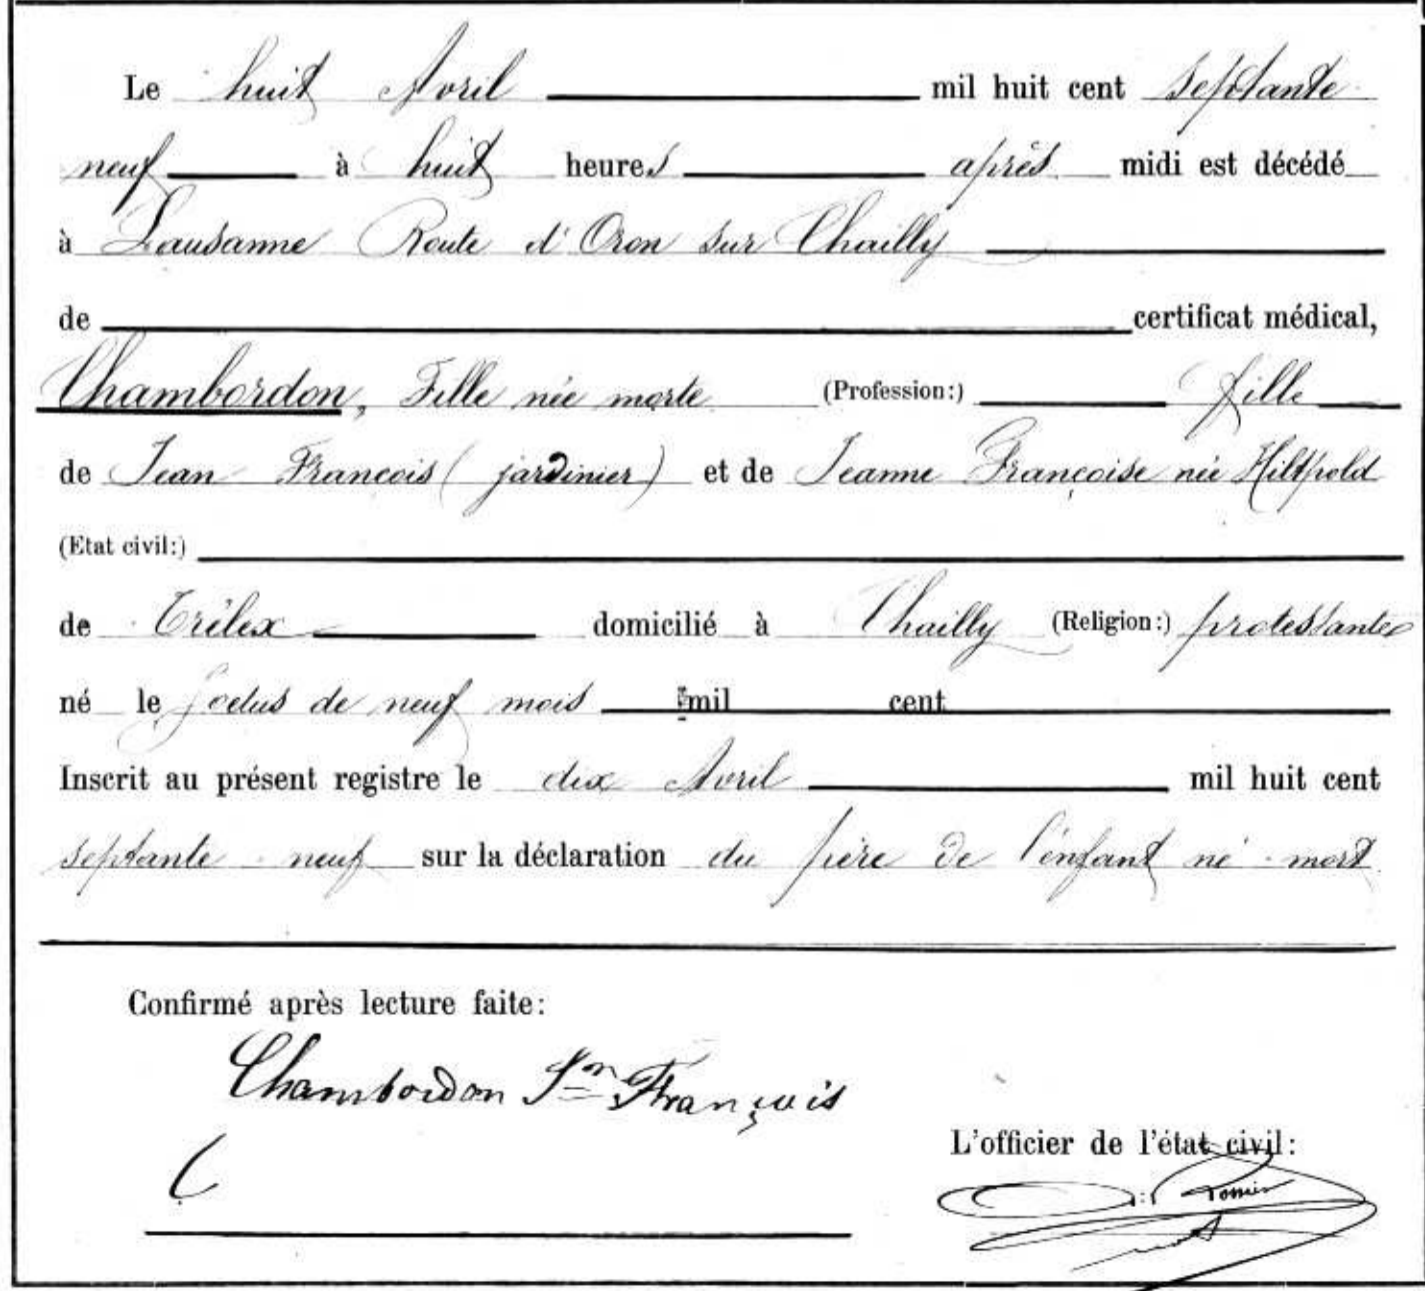 Le huit Avril mil huit cent septante
neuf à huit heures après midi est décédé
à Lausanne Route d'Oron sur Chailly
de certificat médical,
Chambordon, Fille née morte (Profession:) fille
de Jean François (jardinier) et de Jeanne Françoise née Hiltpold
(Etat civil:)
de Trélex domicilié à Chailly (Religion:) protestante
né le foetus de neuf mois mil cent
Inscrit au présent registre le dix Avril mil huit cent
septante neuf sur la déclaration du père de l'enfant né-mort
Confirmé après lecture faite:
Chambordon Jn François
L'officier de l'état civil: